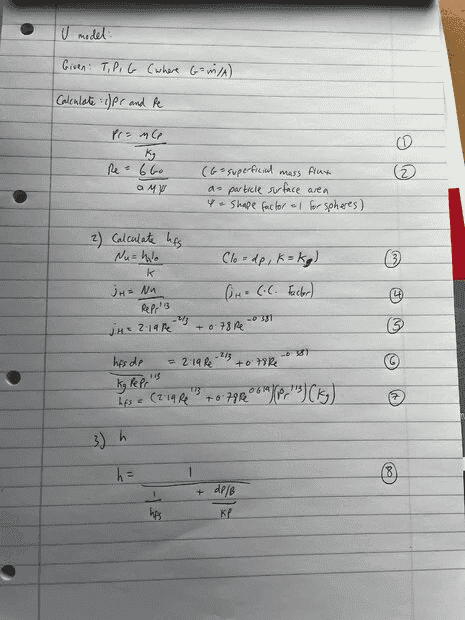 U model:
Given: T, P, G (where G = ṁ/A)
Calculate: 1) Pr and Re
Pr = μCp / kg ①
Re = 6G₀ / aμψ (G = superficial mass flux ②
a = particle surface area
ψ = shape factor = 1 for spheres)
2) Calculate hfs
Nu = hl₀ / k (l₀ = dp, K = kg) ③
jH = Nu / RePr^1/3 (jH = C.C. factor) ④
jH = 2.19Re^-2/3 + 0.78Re^-0.381 ⑤
hfs dp / kg RePr^1/3 = 2.19Re^-2/3 + 0.78Re^-0.381 ⑥
hfs = (2.19Re^1/3 + 0.78Re^0.619)(Pr^1/3)(kg) ⑦
3) h
h = 1 / (1/hfs + (dp/β)/kp) ⑧